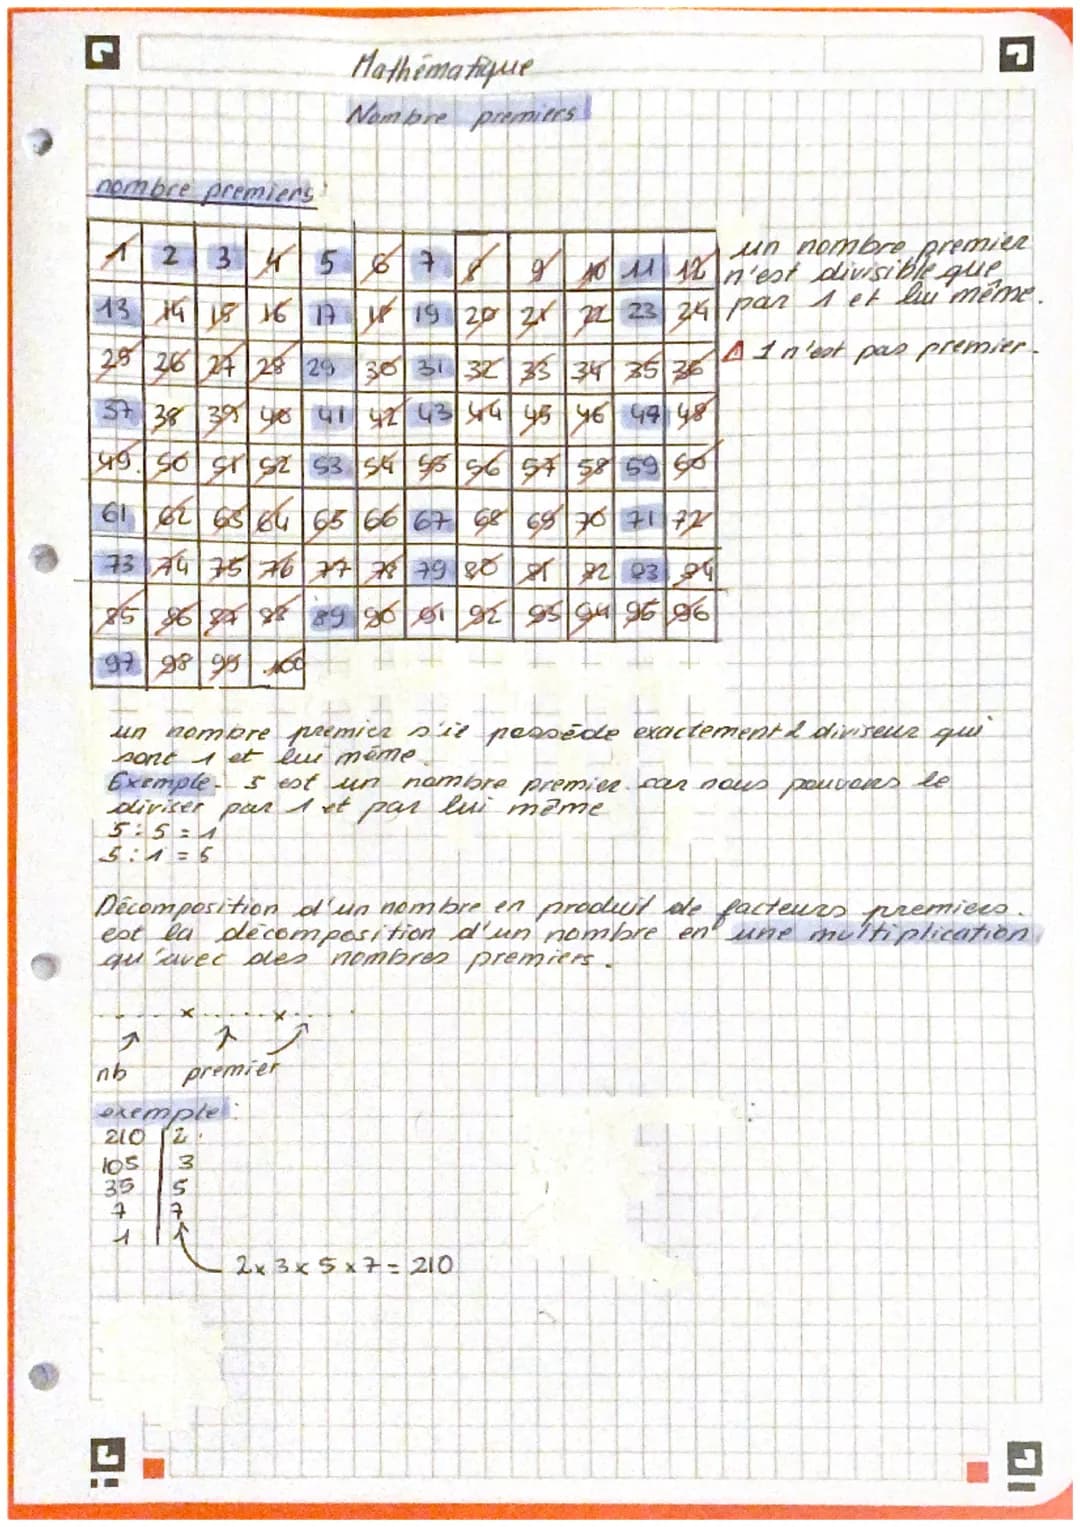 Mathématique
Nombre premiers
nombre premiers:
1 2 3 4 5 6 7 8 9 10 11 12
13 14 15 16 17 18 19 20 21 22 23 24
25 26 27 28 29 30 31 32 33 34 35 36
37 38 39 40 41 42 43 44 45 46 47 48
49 50 51 52 53 54 55 56 57 58 59 60
61 62 63 64 65 66 67 68 69 70 71 72
73 74 75 76 77 78 79 80 81 82 83 84
85 86 87 88 89 90 91 92 93 94 95 96
97 98 99 100
un nombre premier
n'est divisible que
par 1 et lui même.
⚠ 1 n'est pas premier.
un nombre premier s'il possède exactement 2 diviseur qui
sont 1 et lui même.
Exemple- 5 est un nombre premier car nous pouvons le
diviser par 1 et par lui même
5 : 5 = 1
5 : 1 = 5
Décomposition d'un nombre en produit de facteurs premiers.
est la décomposition d'un nombre en une multiplication
qu'avec des nombres premiers.
..... x ..... x .....
nb premier
exemple:
210 | 2
105 | 3
35 | 5
7 | 7
1 |
2 x 3 x 5 x 7 = 210